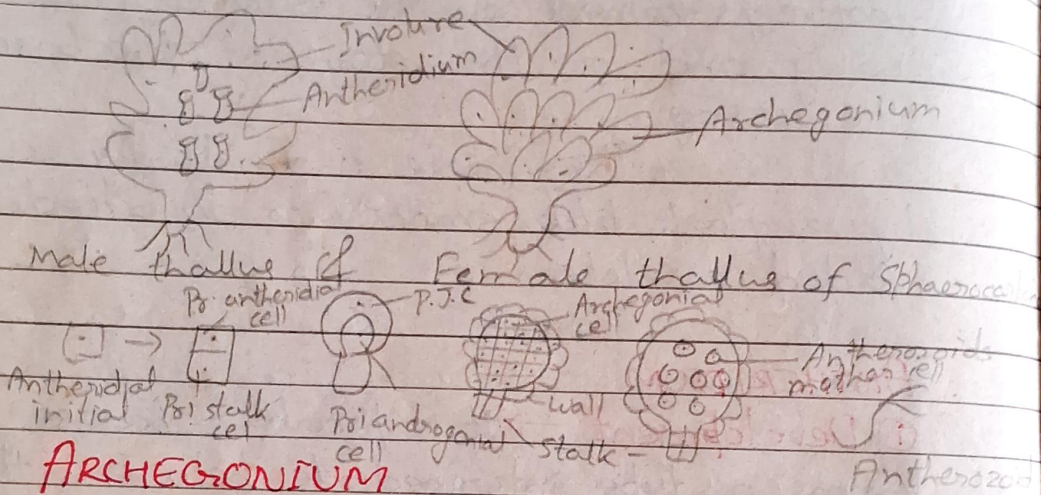 Involure
Antheridium
Archegonium
Male thallus of Female thallus of
Pr. antheridial
cell
P.J.C
Archegonial
cell
Antherozoids
mother cell
Antheridial
initial
Pri stalk
cel
Pri androgonial
cell
wall
Stalk
ARCHEGONIUM
Antherozoi